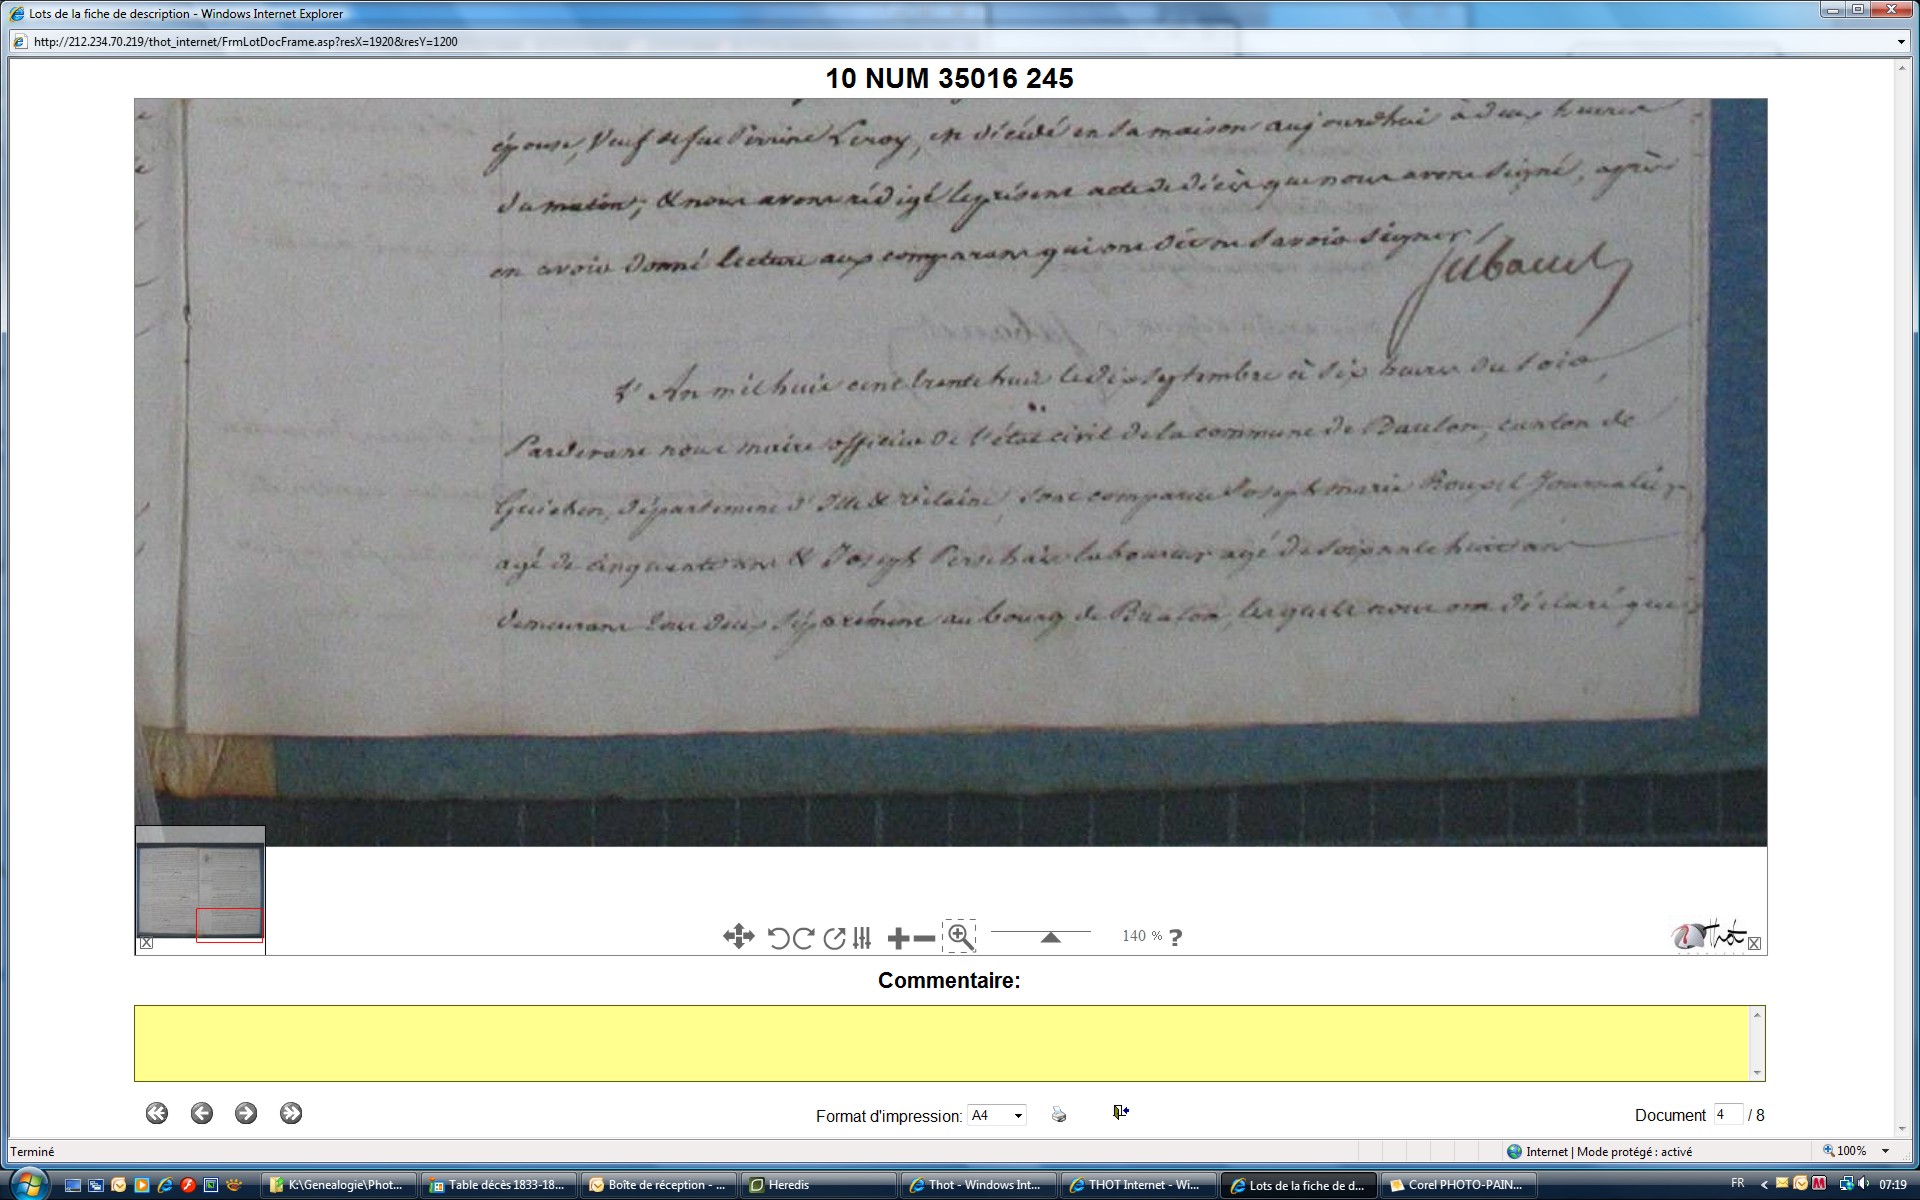 Lots de la fiche de description - Windows Internet Explorer
http://212.234.70.219/thot_internet/FrmLotDocFrame.asp?resX=1920&resY=1200
10 NUM 35016 245
épouse, Veuf de feue Perrine Leroy, est décédé en sa maison aujourdhui à deux heures
du matin; & nous avons rédigé le présent acte de décès que nous avons signé, après
en avoir donné lecture aux comparans qui ont dit ne savoir signer /
Jubault
L'An mil huit cent trente huit le dix septembre à six heures du soir,
Pardevant nous maire officier de l'état civil de la commune de Baulon, canton de
Guichen, département d'Ille & Vilaine, sont comparus Joseph marie Rouxel Journalier
agé de cinquante ans & Joseph Perschais laboureur agé de soixante huit ans
demeurant tous deux séparément au bourg de Baulon, lesquels nous ont déclaré que
140 % ?
Thot
Commentaire:
Format d'impression: A4
Document 4 / 8
Terminé
Internet | Mode protégé : activé
100%
K:\Genealogie\Phot...
Table décès 1833-18...
Boîte de réception - ...
Heredis
Thot - Windows Int...
THOT Internet - Wi...
Lots de la fiche de d...
Corel PHOTO-PAIN...
FR
07:19